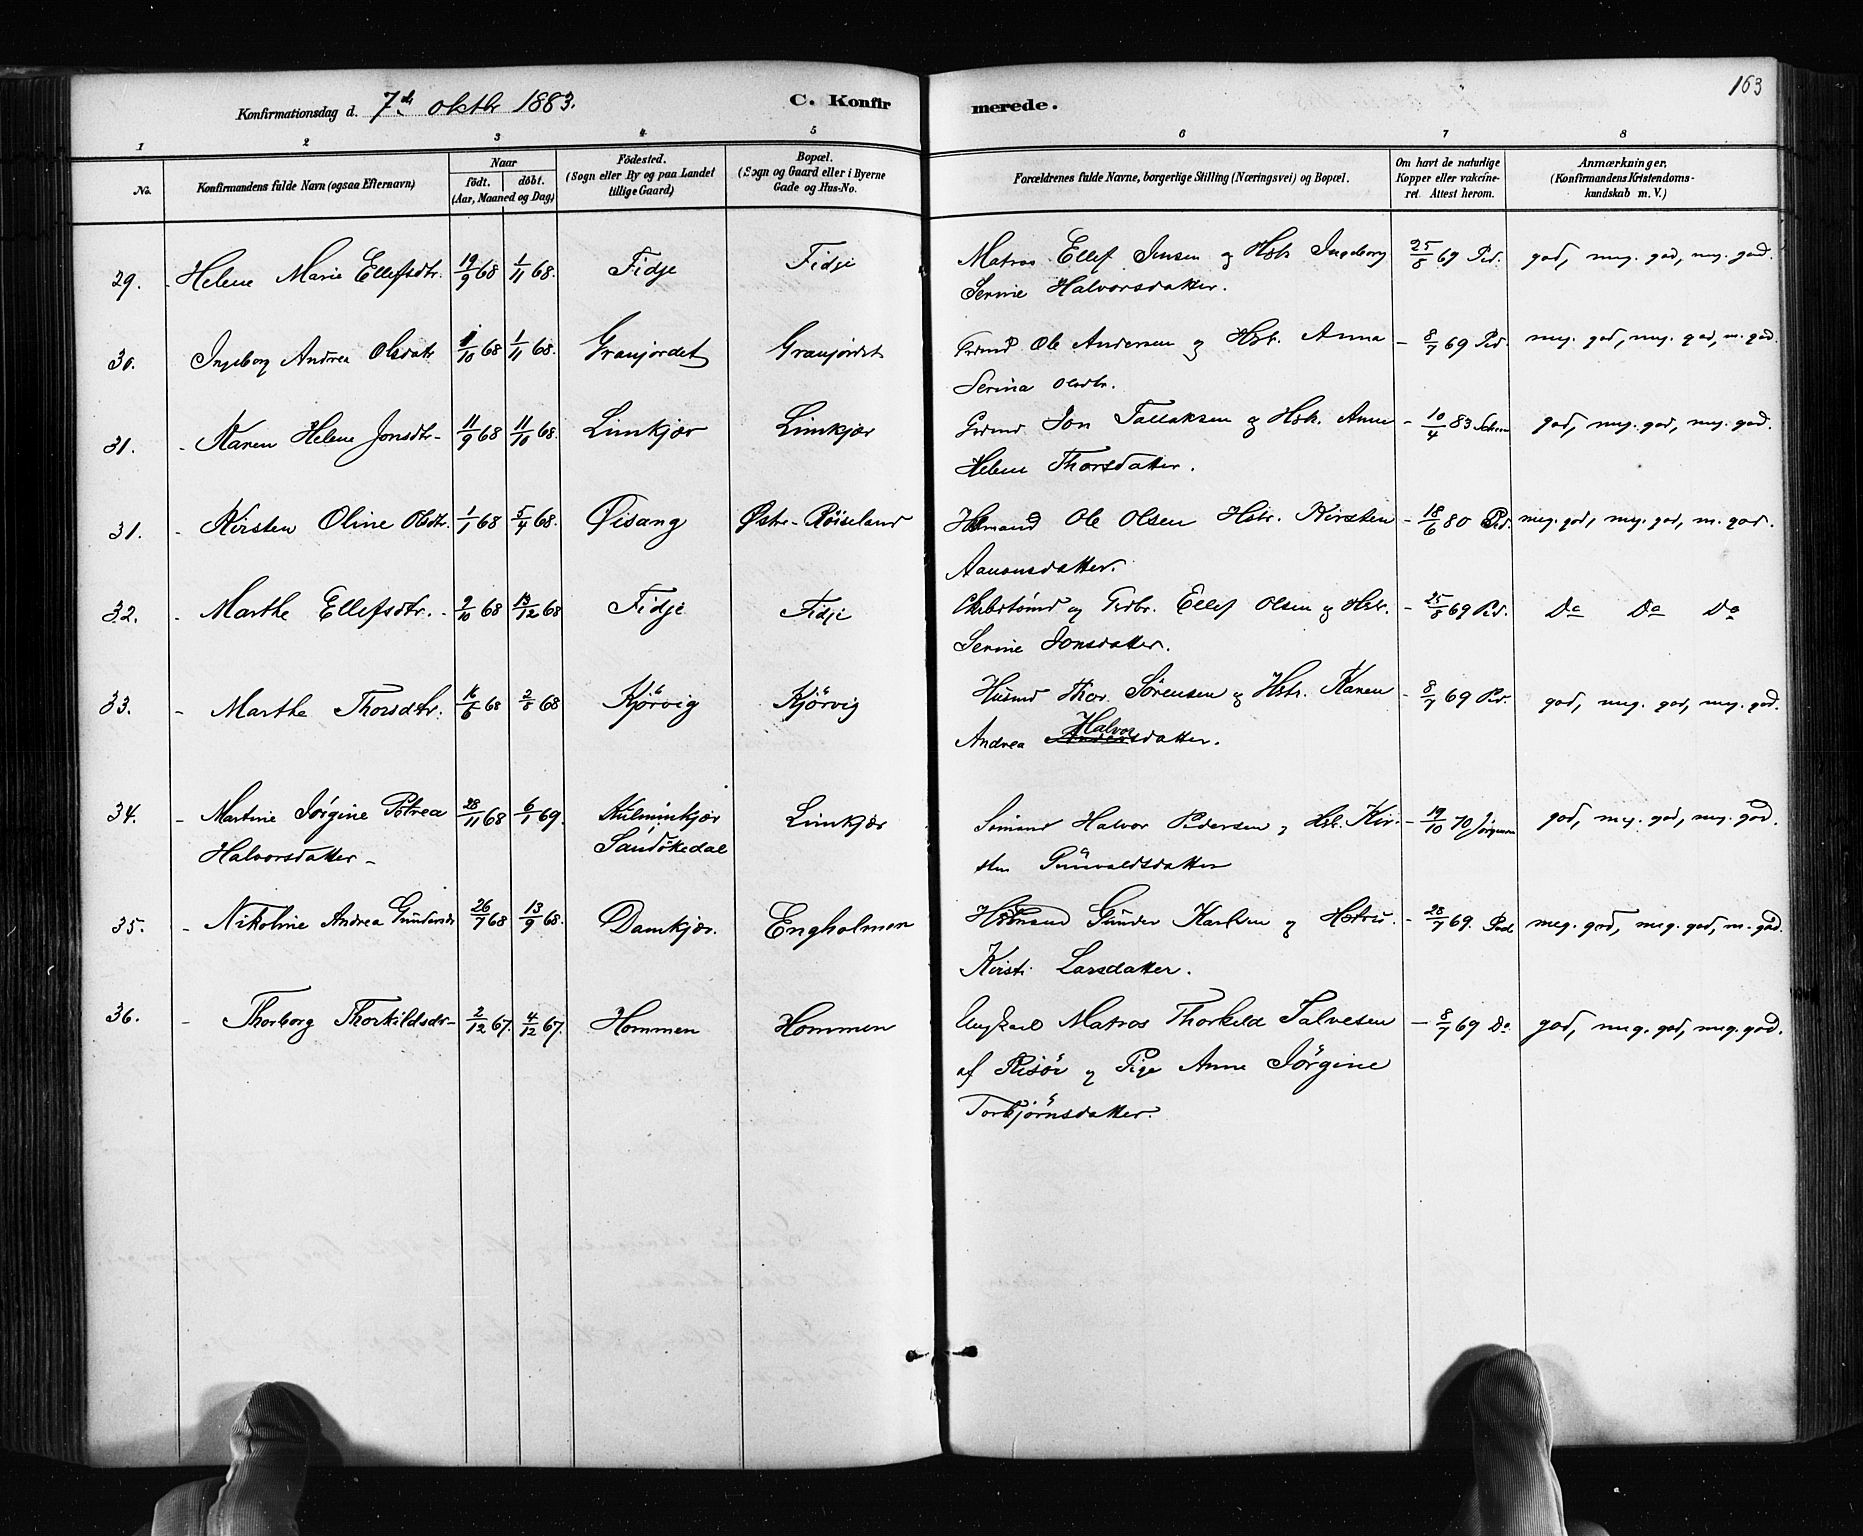 163
Konfirmationsdag d. 7de oktbr 1883. C. Konfirmerede.
1 2 3 4 5 6 7 8
No. Konfirmandens fulde Navn (ogsaa Efternavn) Naar født. døbt. (Aar, Maaned og Dag) Födested. (Sogn eller By og paa Landet tillige Gaard) Bopæl. (Sogn og Gaard eller i Byerne Gade og Hus-No. Forældrenes fulde Navne, borgerlige Stilling (Næringsvei) og Bopæl. Om havt de naturlige Kopper eller vakcineret. Attest herom. Anmærkninger. (Konfirmandens Kristendomskundskab m. V.)
29. - Helene Marie Ellefsdtr. 19/9 68 1/11 68. Fidje Fidje Matros Ellef Jensen og Hstr Ingeborg 25/8 69 Ped. god, meg. god, meg. god.
Serine Halvorsdatter.
30. Ingeborg Andrea Olsdatr 1/10 68 1/11 68. Granjordet Granjordet Grdmd Ole Andersen og Hstr. Anna - 8/7 69 Ped. meg. god, meg. god, m. god.
Serina Olsdtr.
31. - Karen Helene Jonsdtr- 11/9 68 11/10 68. Limkjær Limkjær Grdmd Jon Tallaksen og Hstr. Anne - 10/4 83 god, meg. god, meg. god.
Helene Thorsdatter.
31. - Kirsten Oline Olsdtr. 1/1 68 5/4 68. Øisang Østr- Røiseland Husmand Ole Olsen Hstr. Kirsten - 18/6 80 Ped. meg. god, meg. god, m. god.
Aanonsdatter.
32. - Marthe Ellefsdtr. - 2/10 68 13/12 68 Fidje Fidje og Grdbr. Ellef Olsen og Hstr. - 25/8 69 Ped. Do Do Do
Serine Jonsdatter.
33. - Marthe Thorsdtr. 68 2/8 68 Kjörvig Kjörvig Husmd Thor Sörensen og Hstr. Karen - 8/7 69 Ped. god, meg. god, meg. god.
Andrea Halvorsdatter.
34. - Martine Jörgine Petrea 28/11 68 6/1 69. Limkjær Sömand Halvor Pedersen og Hstr. Kir- - 19/10 70 Jörgensen god, meg. god, meg. god.
Halvorsdatter - Sandökedal sten Gunvaldsdatter
35. - Nikoline Andrea Gundersdr 26/7 68 13/9 68. Damkjær. Engholmen Husmand Gunder Karlsen og Hstru - 28/7 69. Ped. meg. god, meg. god, m. god.
Kirsti Larsdatter.
36. - Thorborg Thorkildsdr- 2/12 67. 4/12 67. Hommen Hommen Ungkarl Matros Thorkild Salvesen - 8/7 69 Do god, meg. god, meg. god.
af Risör og Pige Anne Jörgine
Torbjörnsdatter.